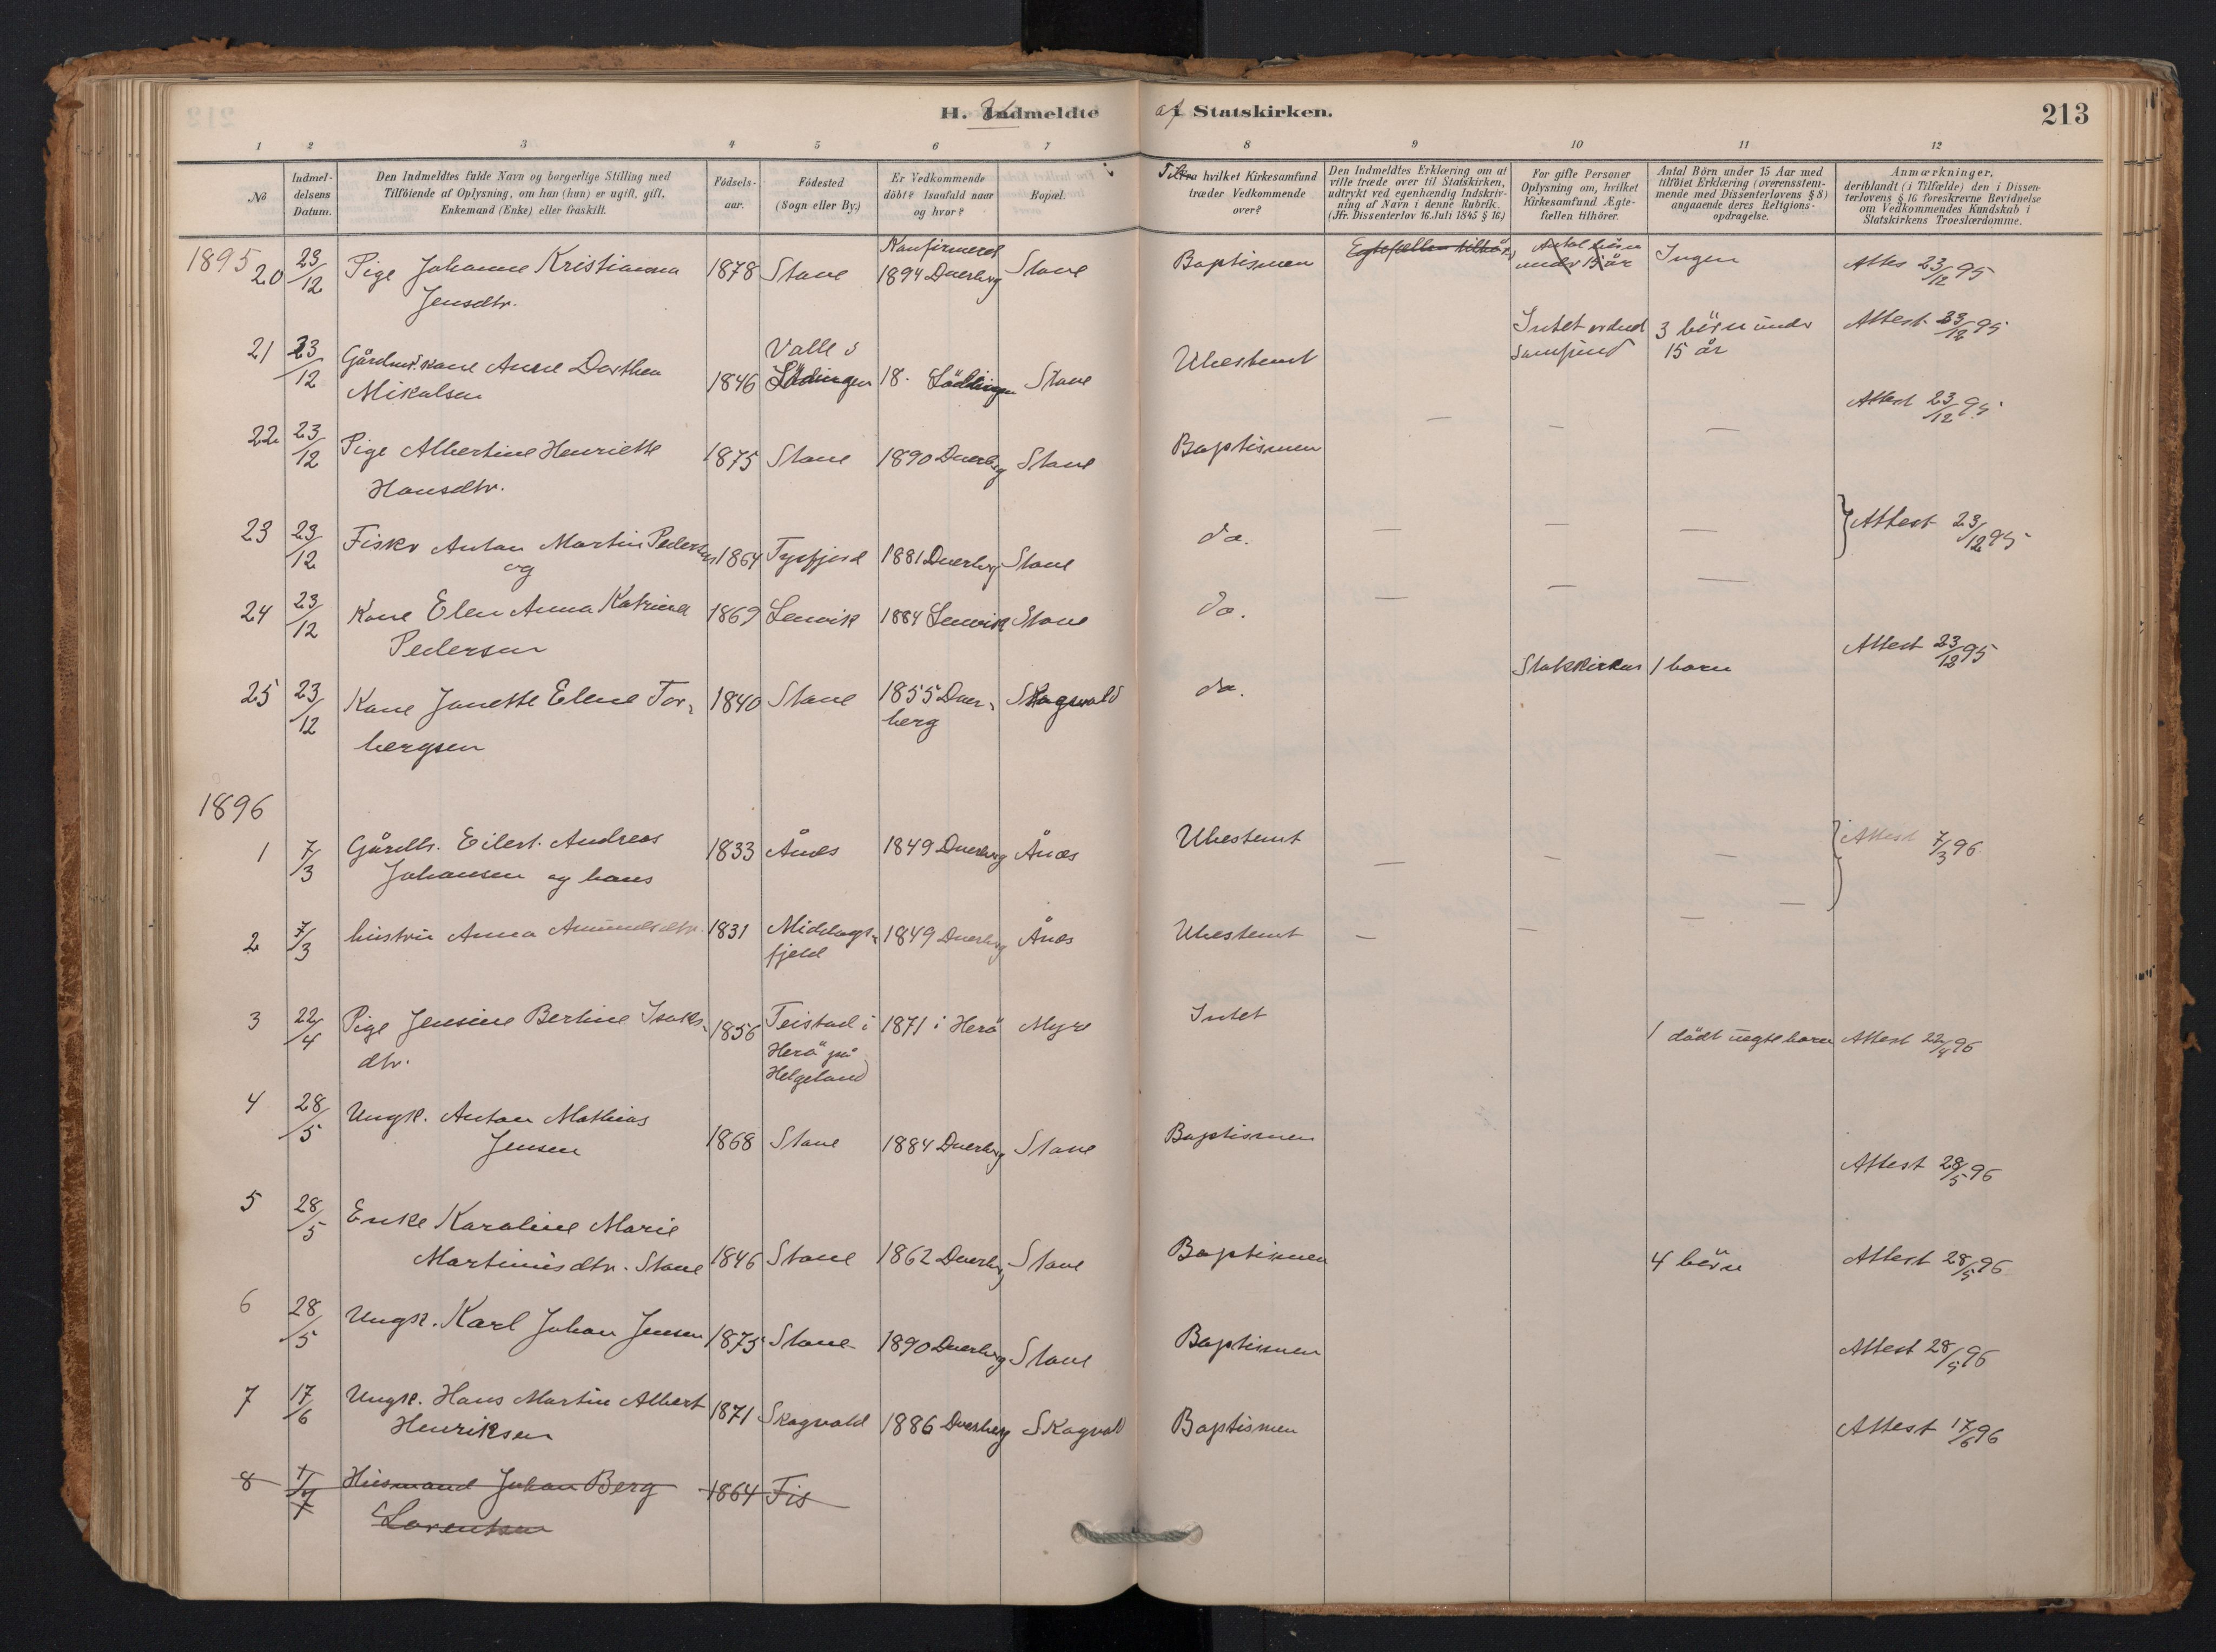 H. Indmeldte af i Statskirken. 213
1 2 3 4 5 6 7 8 9 10 11 12
No
Indmeldelsens Datum.
Den Indmeldtes fulde Navn og borgerlige Stilling med
Tilföiende af Oplysning, om han (hun) er ugift, gift,
Enkemand (Enke) eller fraskilt.
Födselsaar.
Födested
(Sogn eller By.)
Er Vedkommende
döbt? Isaafald naar
og hvor?
Bopæl.
Til hvilket Kirkesamfund
træder Vedkommende
over?
Den Indmeldtes Erklæring om at
ville træde over til Statskirken,
udtrykt ved egenhændig Indskriv-
ning af Navn i denne Rubrik.
(Jfr. Dissenterlov 16. Juli 1845 § 16.)
For gifte Personer
Oplysning om, hvilket
Kirkesamfund Ægte-
fællen tilhörer.
Antal Börn under 15 Aar med
tilföiet Erklæring (overensstem-
mende med Dissenterlovens § 8)
angaaende deres Religions-
opdragelse.
Anmærkninger,
deriblandt (i Tilfælde) den i Dissen-
terlovens § 16 foreskrevne Bevidnelse
om Vedkommendes Kundskab i
Statskirkens Troeslærdomme.
1895
Konfirmeret
Egtefællen tilhör
Antal börn
under 15 år
20 23/12 Pige Johanne Kristianna 1878 Stave 1894 Dverberg Stave Baptismen Ingen Attest 23/12 95
Jensdtr.
21 23/12 Gårdm.s kone Anne Dorthea Valle i Ubestemt Intet ordnet 3 börn under Attest 23/12 95
Mikalsen 1846 Lödingen 18. Lödingen Stave samfund 15 år
22 23/12 Pige Albertine Henriette 1875 Stave 1890 Dverberg Stave Baptismen — — — Attest 23/12 95
Hansdtr.
23 23/12 Fisker Anton Martin Pedersen 1864 Tysfjord 1881 Dverberg Stave do. — — — Attest 23/12 95
og
24 23/12 Kone Elen Anna Katrina 1869 Lenvik 1884 Lenvik Stave do. — — —
Pedersen
25 23/12 Kone Janette Elene Tor- 1840 Stave 1855 Dver- Skogvold do. Statskirken 1 barn Attest 23/12 95
bergsen berg
1896
1 7/3 Gårdbr. Eilert Andreas 1833 Ånes 1849 Dverberg Ånes Ubestemt — — — Attest 7/3 96
Johansen og hans
2 7/3 hustru Anna Amundsdtr. 1831 Middags- 1849 Dverberg Ånes Ubestemt — — — —
fjeld
3 22/4 Pige Jensine Bertine Isaks- 1856 Teistad i 1871 i Herö Myre Intet 1 dödt uegte barn Attest 22/4 96
dtr. Herö på
Helgeland
4 28/5 Ungk. Anton Mathias
Jensen 1868 Stave 1884 Dverberg Stave Baptismen Attest 28/5 96
5 28/5 Enke Karoline Marie
Martinusdtr. Stave 1846 Stave 1862 Dverberg Stave Baptismen 4 börn Attest 28/5 96
6 28/5 Ungk. Karl Johan Jensen 1875 Stave 1890 Dverberg Stave Baptismen Attest 28/5 96
7 17/6 Ungk. Hans Martin Albert 1871 Skogvold 1886 Dverberg Skogvold Baptismen Attest 17/6 96
Henriksen
8 Husmand Johan Berg 1864 Fis
Lorentsen